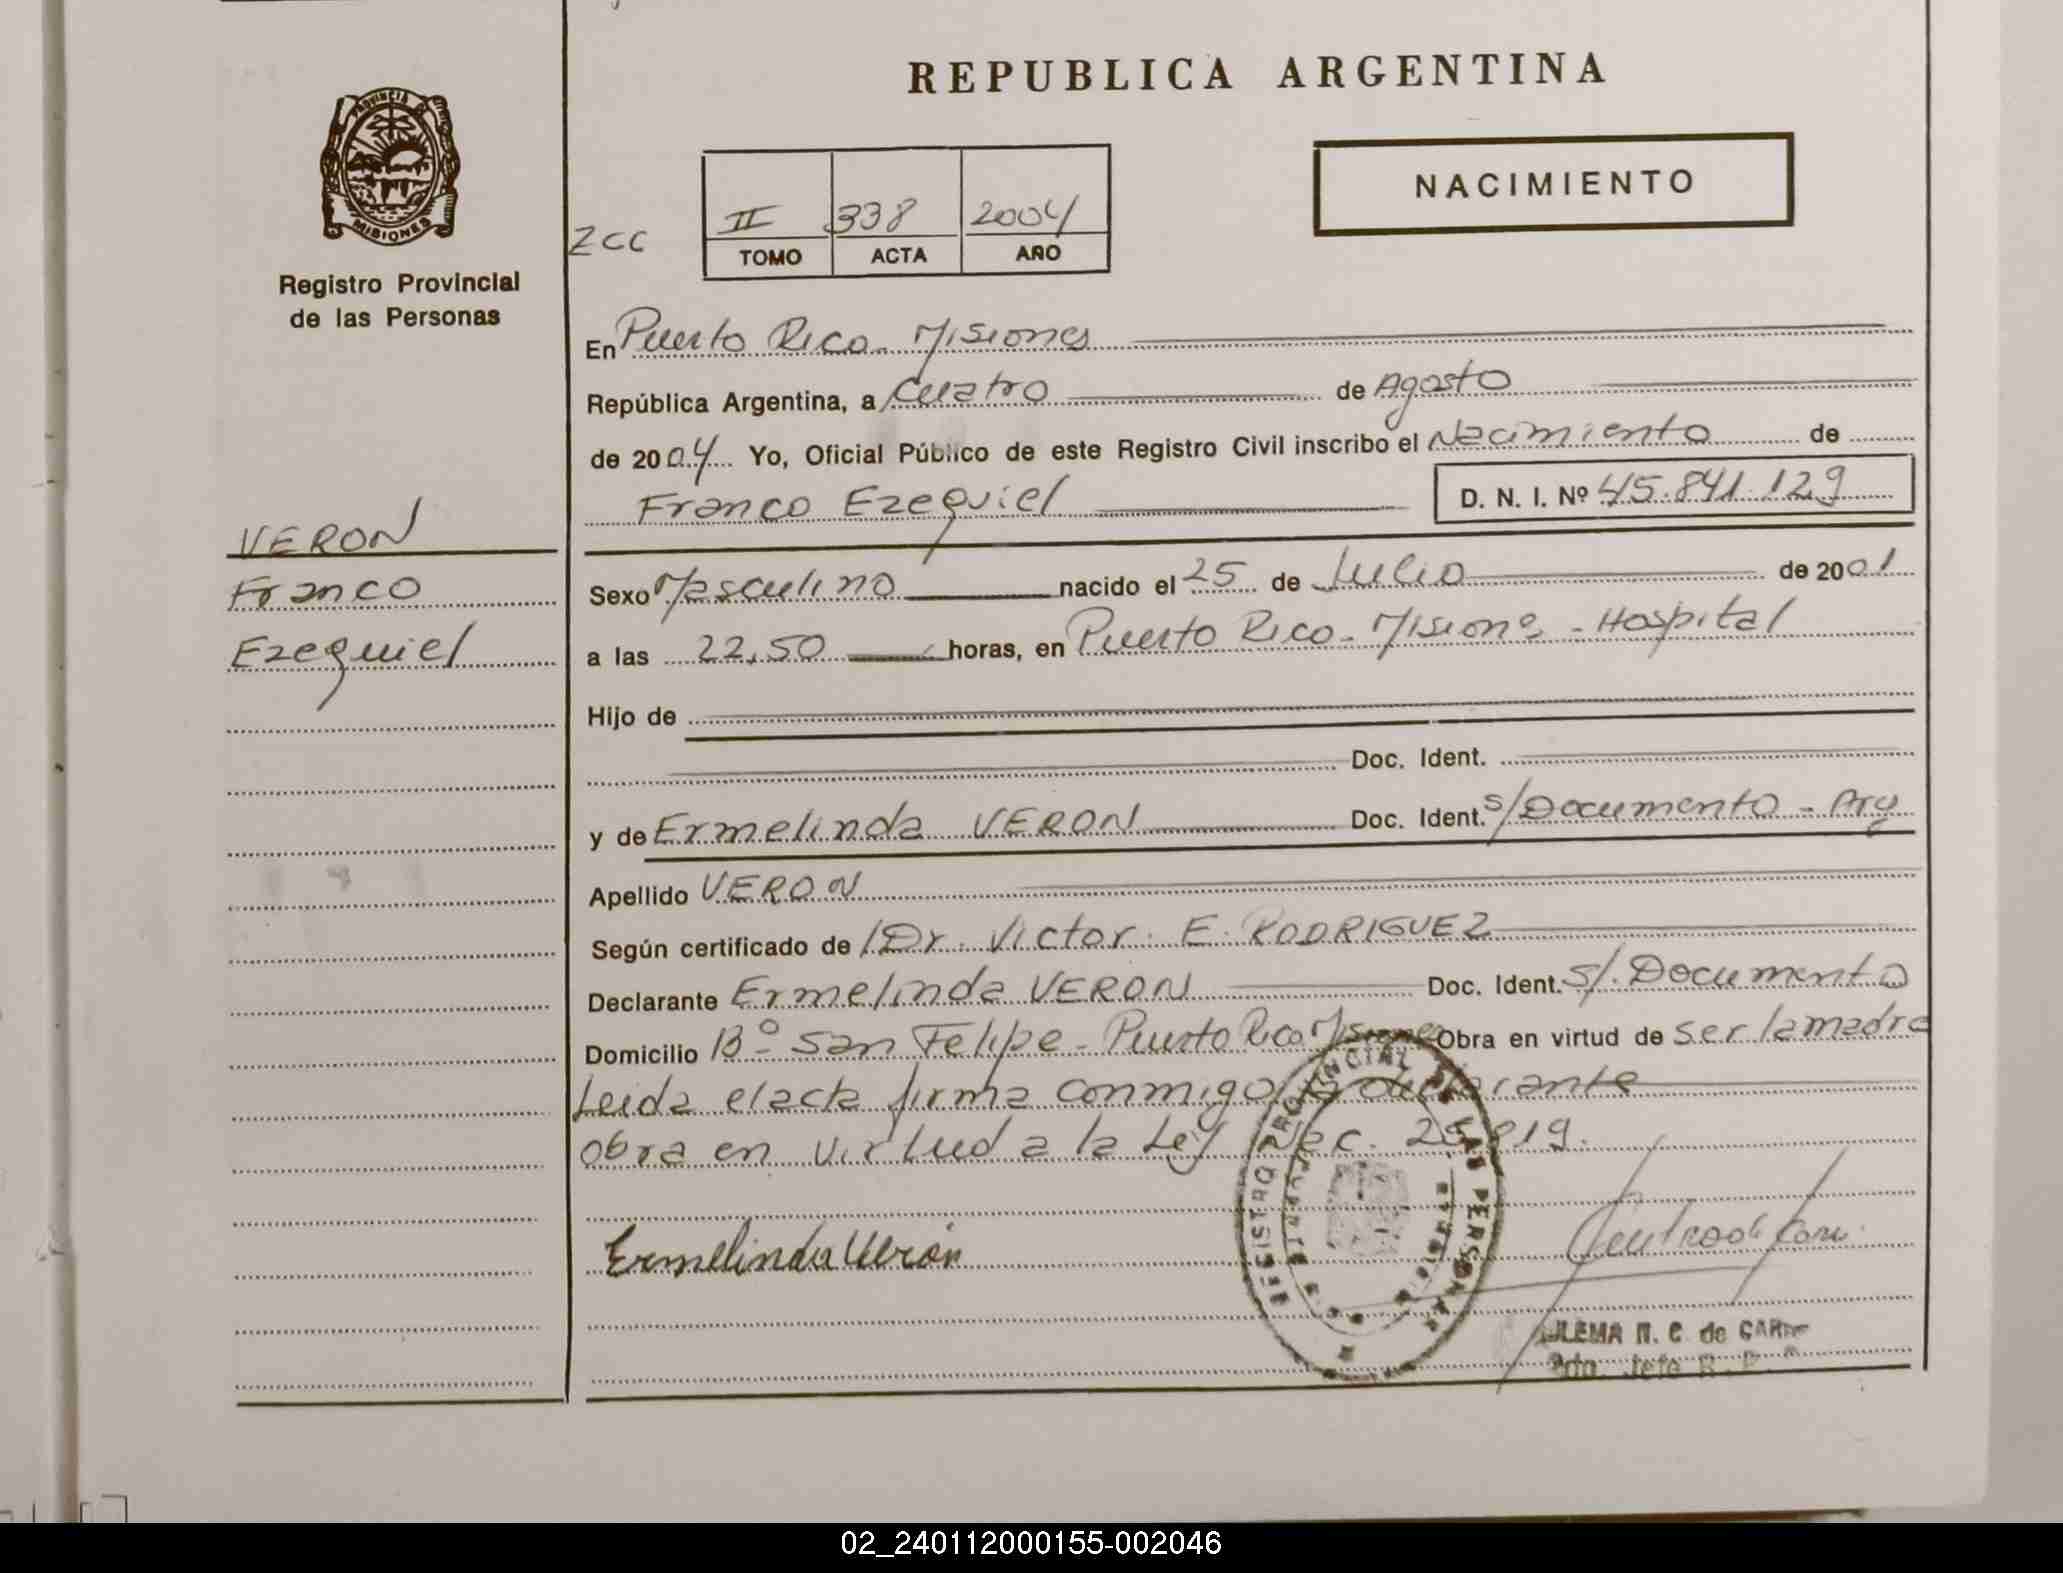 REPUBLICA ARGENTINA
PROVINCIA DE
MISIONES
Registro Provincial
de las Personas
NACIMIENTO
ZCC
II 338 2004
TOMO ACTA AÑO
En Puerto Rico - Misiones
República Argentina, a Cuatro de Agosto
de 2004 Yo, Oficial Público de este Registro Civil inscribo el Nacimiento de
Franco Ezequiel D. N. I. Nº 45.841.129
VERON
Franco
Ezequiel
Sexo Masculino nacido el 25 de Julio de 2001
a las 22,50 horas, en Puerto Rico - Misiones - Hospital
Hijo de
Doc. Ident.
y de Ermelinda VERON Doc. Ident. s/Documento - Arg
Apellido VERON
Según certificado de Dr. Victor E. RODRIGUEZ
Declarante Ermelinda VERON Doc. Ident. s/. Documento
Domicilio Bº San Felipe - Puerto Rico Misiones Obra en virtud de ser la madre
Leida el acta firma conmigo la declarante
obra en virtud a la Ley Nac. 25.819.
Ermelinda Verón
REGISTRO PROVINCIAL DE LAS PERSONAS
N. C. de
Jefe
02_240112000155-002046